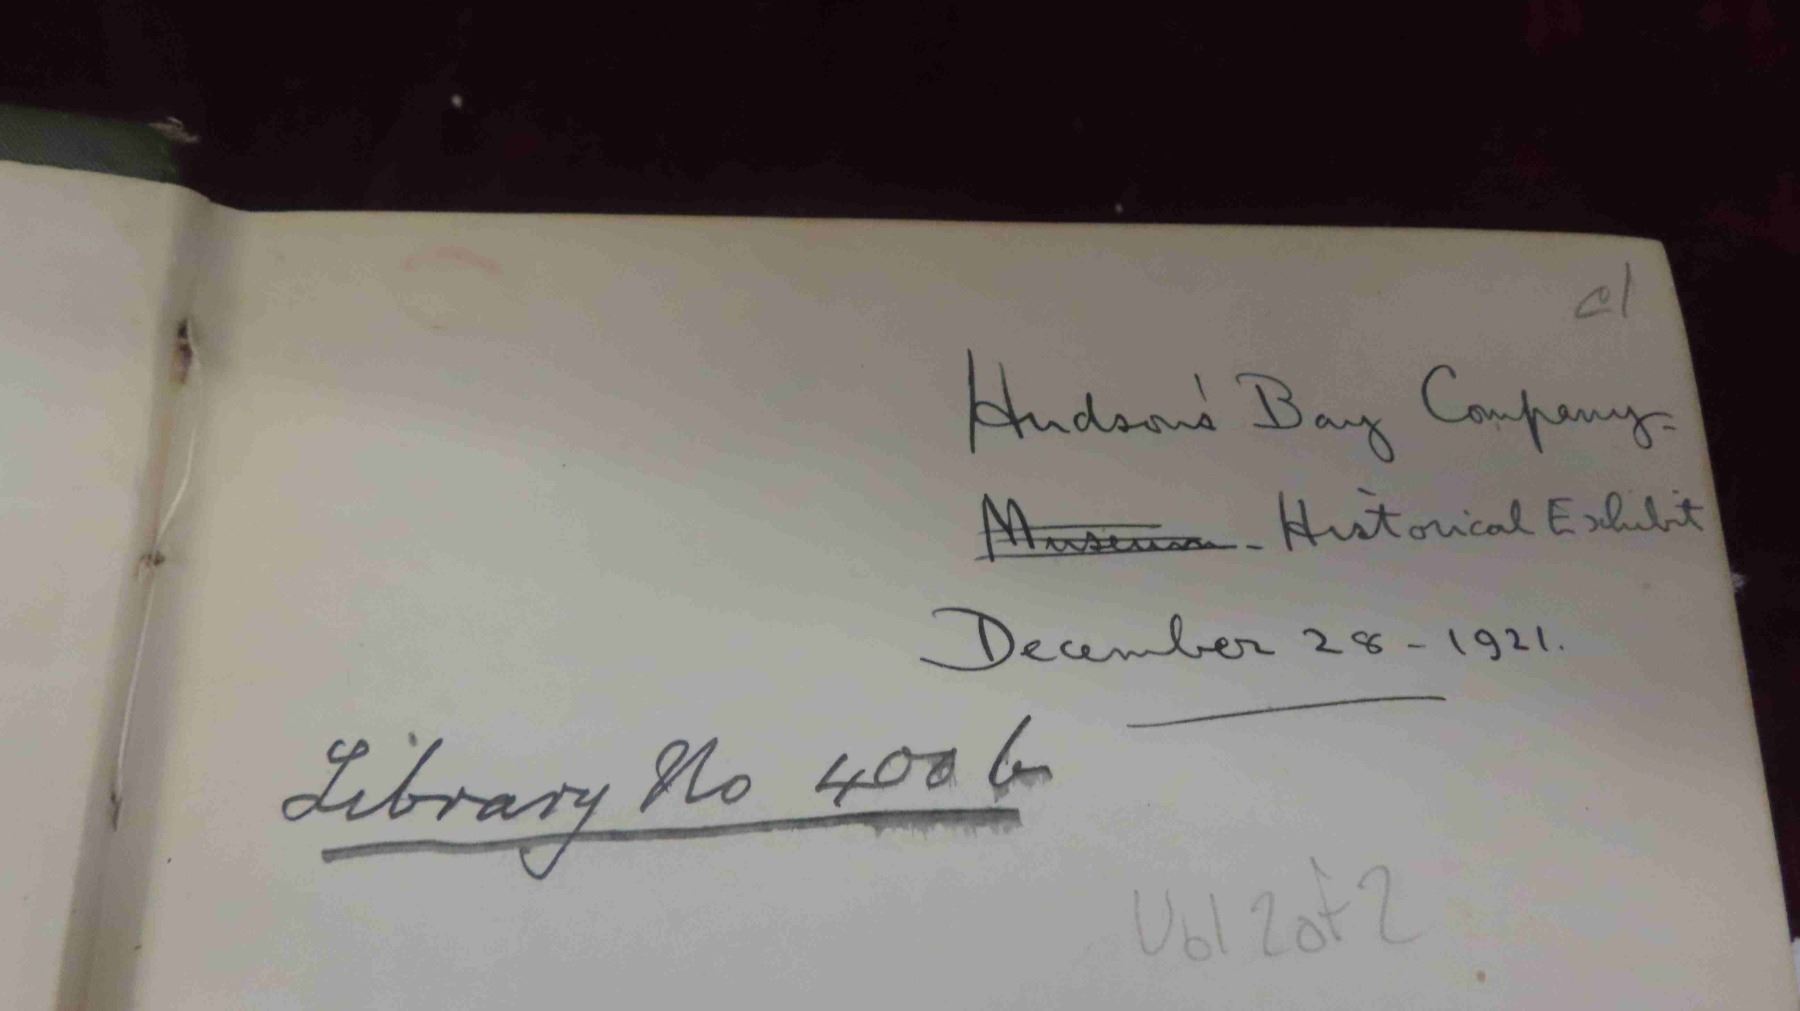 c1
Hudson's Bay Company-
Museum - Historical Exhibit
December 28 - 1921.
Library No 400 b
Vol 2 of 2